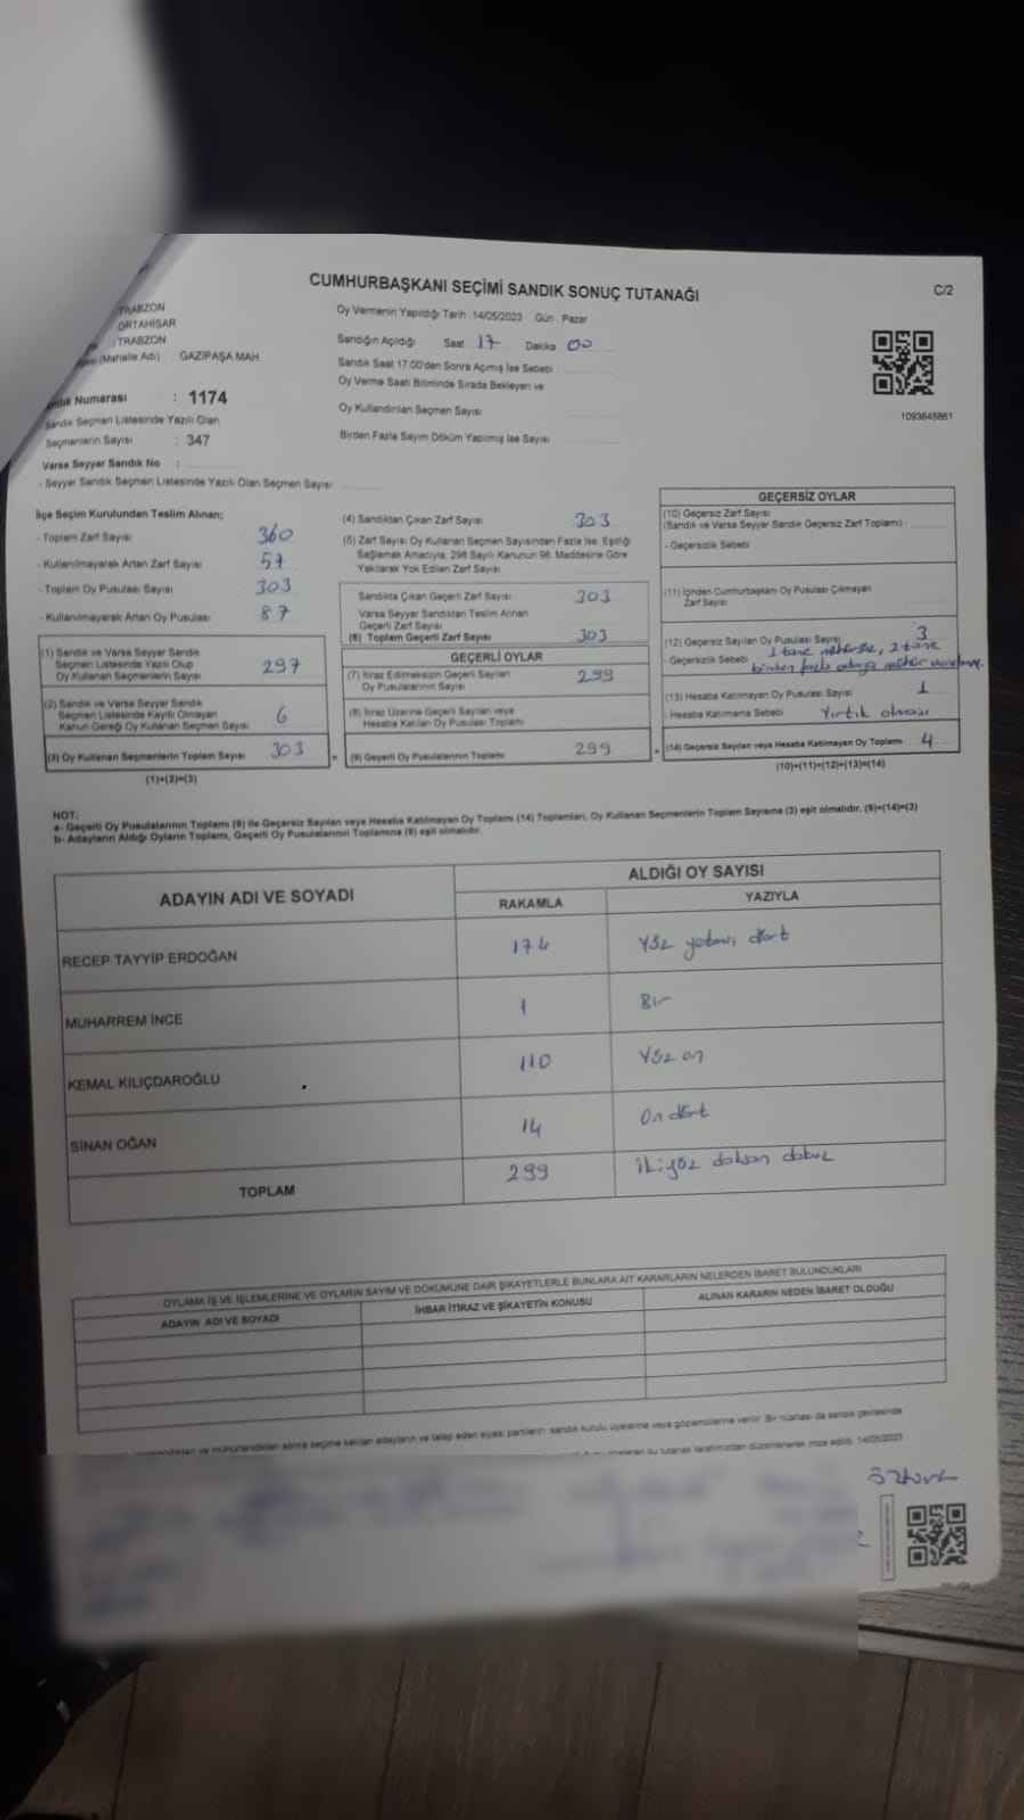 CUMHURBAŞKANI SEÇİMİ SANDIK SONUÇ TUTANAĞI
C/2
TRABZON
ORTAHİSAR
TRABZON
(Mahalle Adı) GAZİPAŞA MAH.
Numarası : 1174
Sandık Seçmen Listesinde Yazılı Olan
Seçmenlerin Sayısı : 347
Varsa Seyyar Sandık No :
- Seyyar Sandık Seçmen Listesinde Yazılı Olan Seçmen Sayısı
Oy Vermenin Yapıldığı Tarih : 14/05/2023 Gün : Pazar
Sandığın Açıldığı Saat 17 Dakika 00
Sandık Saat 17:00'den Sonra Açılmış İse Sebebi
Oy Verme Saati Bitiminde Sırada Bekleyen ve
Oy Kullandırılan Seçmen Sayısı
Birden Fazla Sayım Döküm Yapılmış İse Sayısı
1093645861
İlçe Seçim Kurulundan Teslim Alınan;
- Toplam Zarf Sayısı 360
- Kullanılmayarak Artan Zarf Sayısı 57
- Toplam Oy Pusulası Sayısı 303
- Kullanılmayarak Artan Oy Pusulası 87
(1) Sandık ve Varsa Seyyar Sandık
Seçmen Listesinde Yazılı Olup
Oy Kullanan Seçmenlerin Sayısı 297
(2) Sandık ve Varsa Seyyar Sandık
Seçmen Listesinde Kayıtlı Olmayan
Kanun Gereği Oy Kullanan Seçmen Sayısı 6
(3) Oy Kullanan Seçmenlerin Toplam Sayısı 303
(1)+(2)=(3)
(4) Sandıktan Çıkan Zarf Sayısı 303
(5) Zarf Sayısı Oy Kullanan Seçmen Sayısından Fazla İse, Eşitliği
Sağlamak Amacıyla, 298 Sayılı Kanunun 98. Maddesine Göre
Yakılarak Yok Edilen Zarf Sayısı
Sandıkta Çıkan Geçerli Zarf Sayısı 303
Varsa Seyyar Sandıktan Teslim Alınan
Geçerli Zarf Sayısı
(6) Toplam Geçerli Zarf Sayısı 303
GEÇERLİ OYLAR
(7) İtiraz Edilmeksizin Geçerli Sayılan
Oy Pusulalarının Sayısı 299
(8) İtiraz Üzerine Geçerli Sayılan veya
Hesaba Katılan Oy Pusulası Toplamı
(9) Geçerli Oy Pusulalarının Toplamı 299
GEÇERSİZ OYLAR
(10) Geçersiz Zarf Sayısı
(Sandık ve Varsa Seyyar Sandık Geçersiz Zarf Toplamı)
- Geçersizlik Sebebi
(11) İçinden Cumhurbaşkanı Oy Pusulası Çıkmayan
Zarf Sayısı
(12) Geçersiz Sayılan Oy Pusulası Sayısı 3
- Geçersizlik Sebebi 1 tane mühürsüz, 2 tane
birden fazla adaya mühür
(13) Hesaba Katılmayan Oy Pusulası Sayısı 1
- Hesaba Katılmama Sebebi Yırtık olması
(14) Geçersiz Sayılan veya Hesaba Katılmayan Oy Toplamı 4
(10)+(11)+(12)+(13)=(14)
NOT:
a- Geçerli Oy Pusulalarının Toplamı (9) ile Geçersiz Sayılan veya Hesaba Katılmayan Oy Toplamı (14) Toplamları, Oy Kullanan Seçmenlerin Toplam Sayısına (3) eşit olmalıdır. (9)+(14)=(3)
b- Adayların Aldığı Oyların Toplamı, Geçerli Oy Pusulalarının Toplamına (9) eşit olmalıdır.
ADAYIN ADI VE SOYADI
ALDIĞI OY SAYISI
RAKAMLA YAZIYLA
RECEP TAYYİP ERDOĞAN 174 Yüz yetmiş dört
MUHARREM İNCE 1 Bir
KEMAL KILIÇDAROĞLU 110 Yüz on
SİNAN OĞAN 14 On dört
TOPLAM 299 İkiyüz doksan dokuz
OYLAMA İŞ VE İŞLEMLERİNE VE OYLARIN SAYIM VE DÖKÜMÜNE DAİR ŞİKAYETLERLE BUNLARA AİT KARARLARIN NELERDEN İBARET BULUNDUKLARI
ADAYIN ADI VE SOYADI
İHBAR İTİRAZ VE ŞİKAYETİN KONUSU
ALINAN KARARIN NEDEN İBARET OLDUĞU